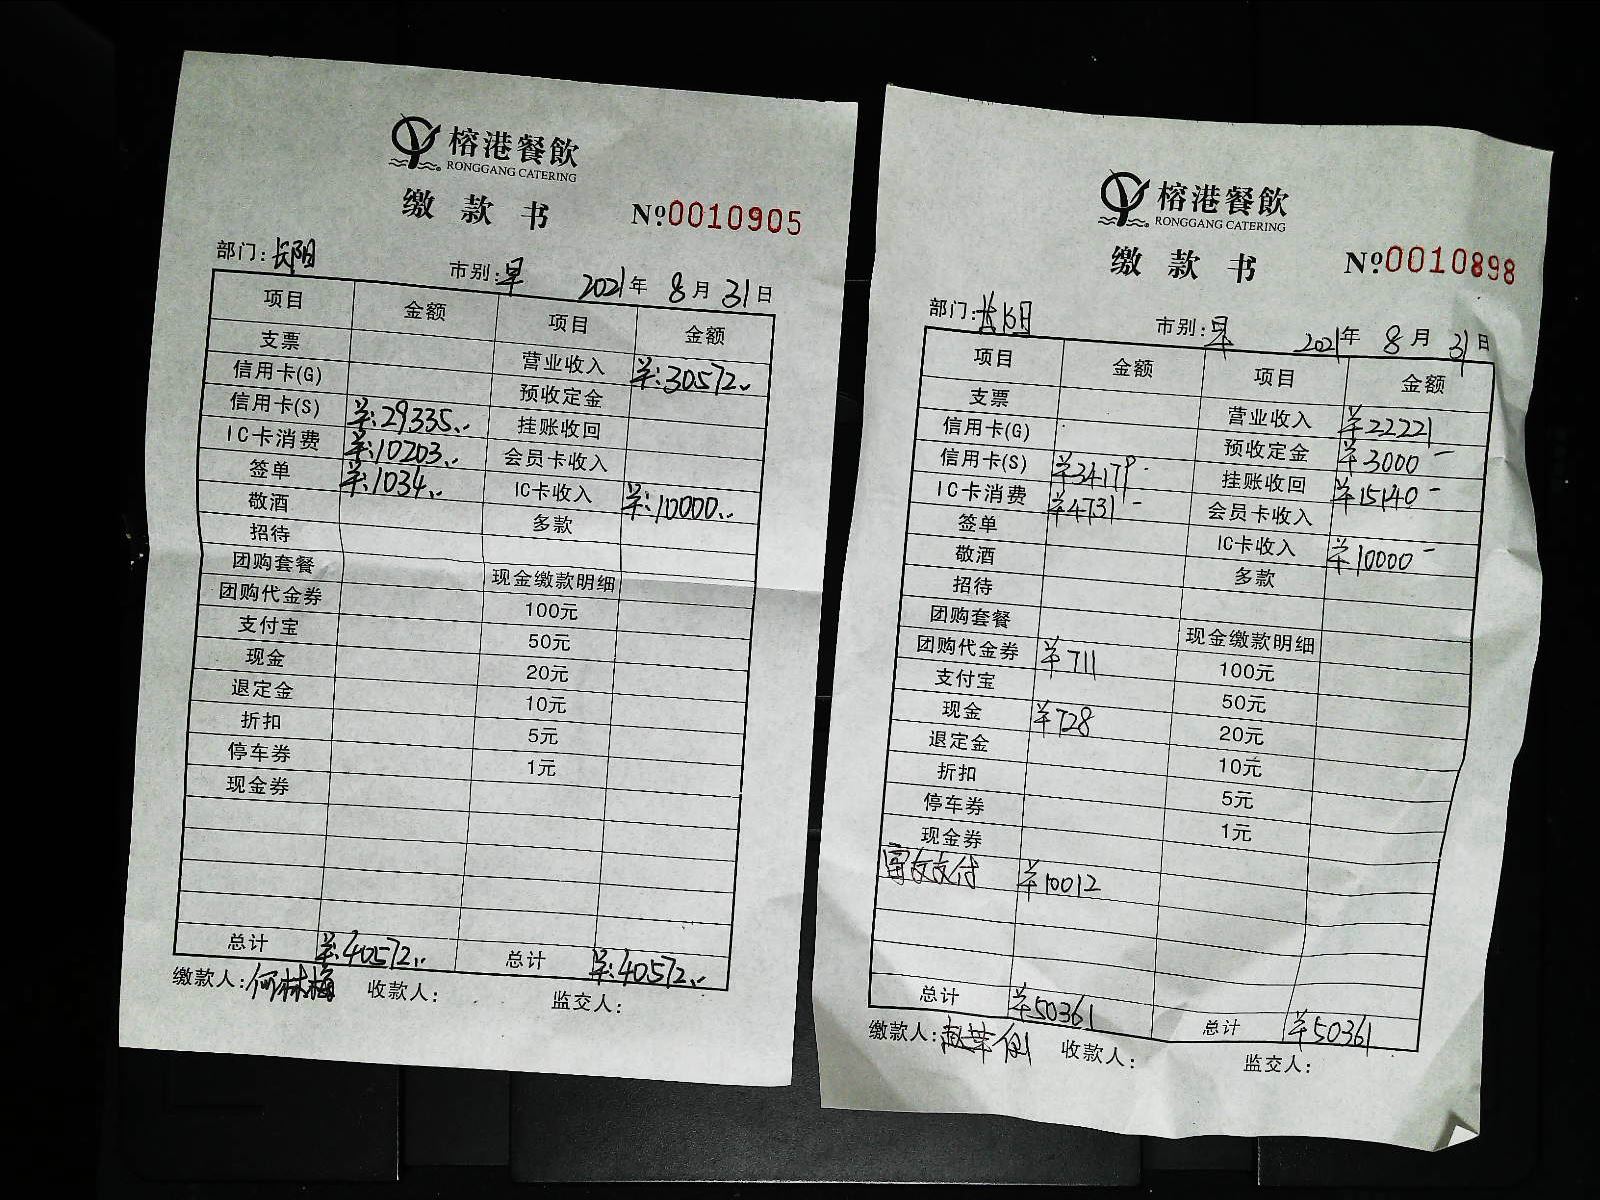 榕港餐飲
RONGGANG CATERING
缴款书 №0010905
部门:长阳 市别:早 2021年8月31日
项目 金额 项目 金额
支票 营业收入 ¥:30572..
信用卡(G) 预收定金
信用卡(S) ¥:29335.. 挂账收回
IC卡消费 ¥:10203.. 会员卡收入
签单 ¥:1034.. IC卡收入 ¥:10000..
敬酒 多款
招待
团购套餐 现金缴款明细
团购代金券 100元
支付宝 50元
现金 20元
退定金 10元
折扣 5元
停车券 1元
现金券
总计 ¥:40572.. 总计 ¥:40572..
缴款人:何林梅 收款人: 监交人:
榕港餐飲
RONGGANG CATERING
缴款书 №0010898
部门:长阳 市别:早 2021年8月31日
项目 金额 项目 金额
支票 营业收入 ¥22221
信用卡(G) 预收定金 ¥3000-
信用卡(S) ¥34179- 挂账收回 ¥15140-
IC卡消费 ¥4731- 会员卡收入
签单 IC卡收入 ¥10000-
敬酒 多款
招待
团购套餐 现金缴款明细
团购代金券 ¥711 100元
支付宝 50元
现金 ¥728 20元
退定金 10元
折扣 5元
停车券 1元
现金券
富友支付 ¥10012
总计 ¥50361 总计 ¥50361
缴款人:赵 收款人: 监交人: